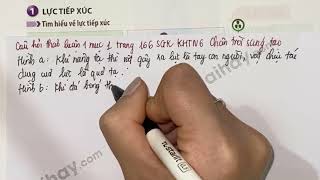 1 LỰC TIẾP XÚC
Tìm hiểu về lực tiếp xúc
Câu hỏi thảo luận 1 mục 1 trang 166 SGK KHTN6 Chân trời sáng tạo
Hình a: Khi nâng tạ thì vật gây ra lực là tay con người, vật chịu tác
dụng của lực là quả tạ.
Hình b: Khi đá bóng th